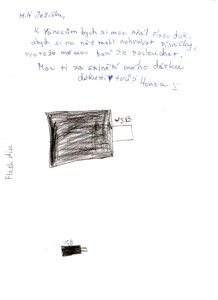 Milý Ježíšku,
K Vánocům bych si moc přál Flash disk,
abych si na něj mohl nahrávat písničky,
protože mě moc baví je poslouchat.
Moc ti za splnění mého dárku
děkuji ♥ tvůj Honza
USB
Flash disc
USB